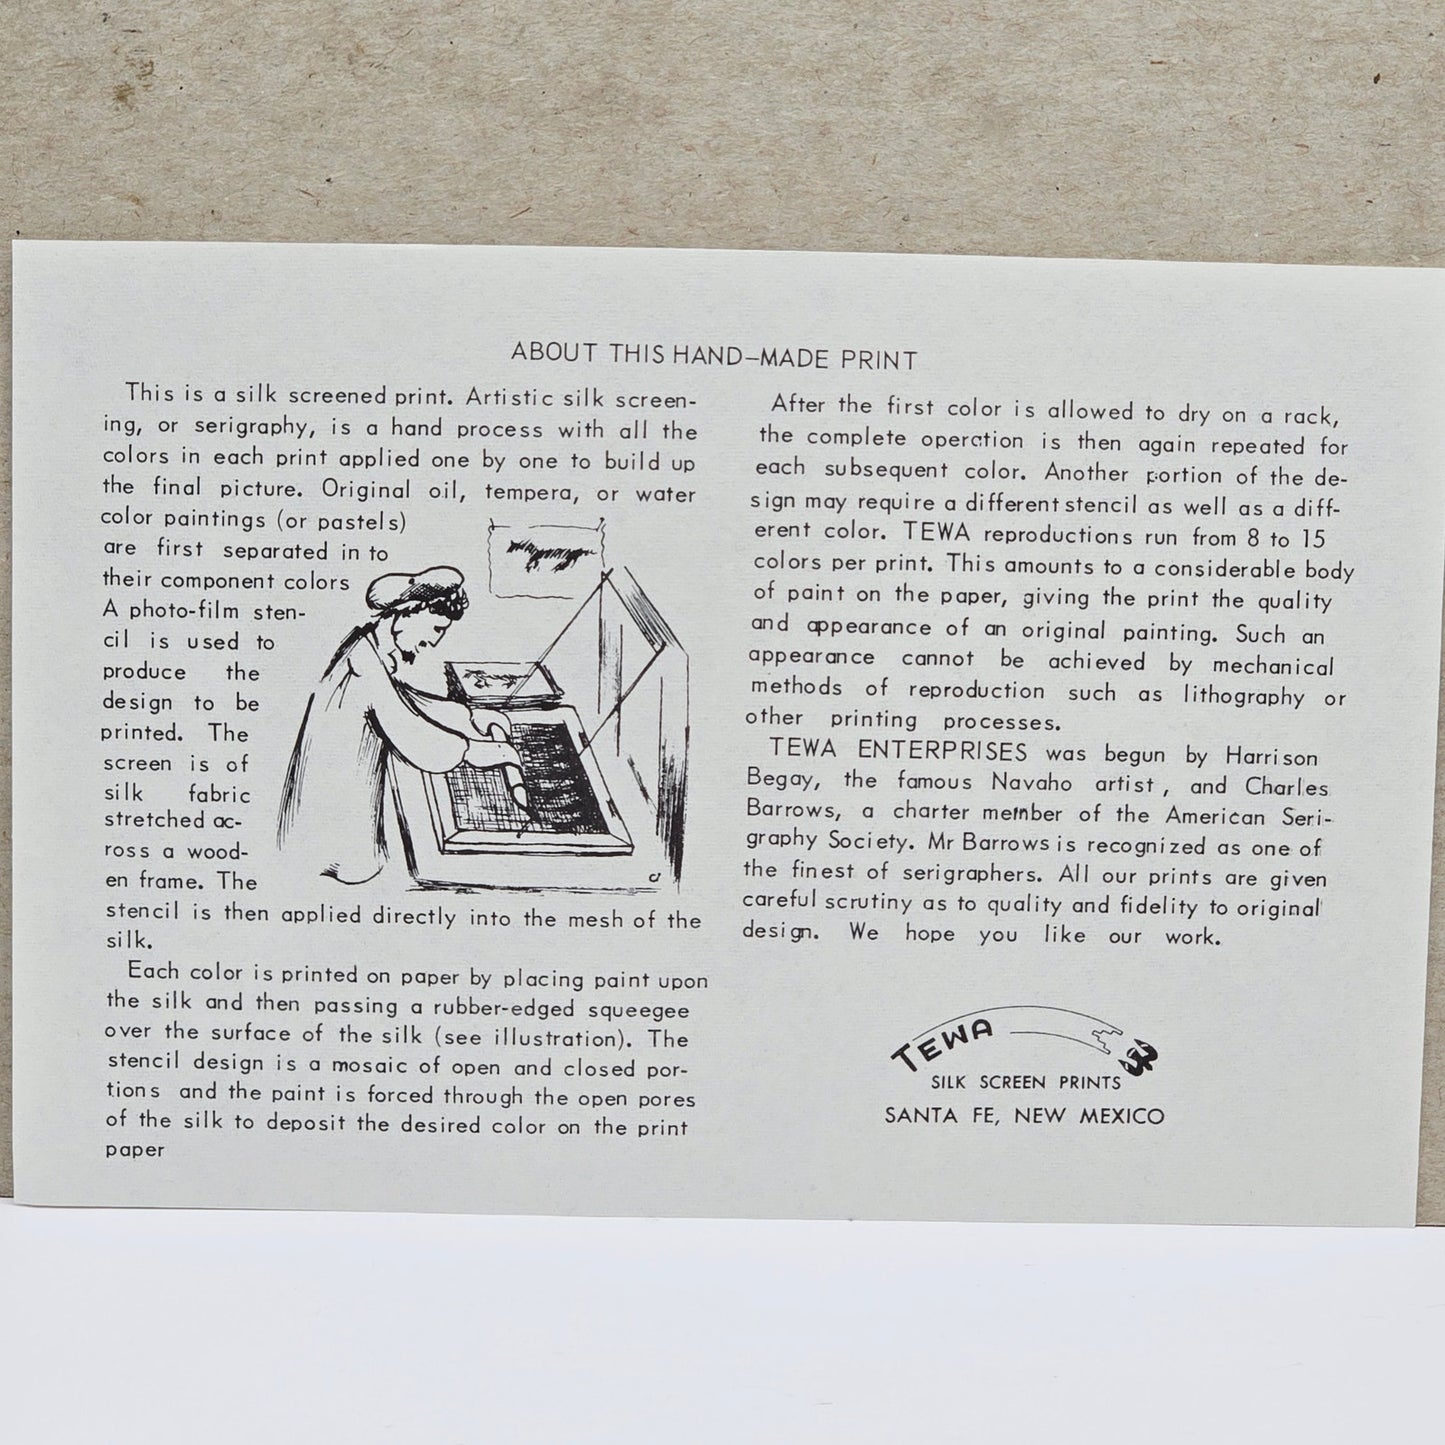 ABOUT THIS HAND-MADE PRINT
This is a silk screened print. Artistic silk screen-
ing, or serigraphy, is a hand process with all the
colors in each print applied one by one to build up
the final picture. Original oil, tempera, or water
color paintings (or pastels)
are first separated in to
their component colors
A photo-film sten-
cil is used to
produce the
design to be
printed. The
screen is of
silk fabric
stretched ac-
ross a wood-
en frame. The
stencil is then applied directly into the mesh of the
silk.
Each color is printed on paper by placing paint upon
the silk and then passing a rubber-edged squeegee
over the surface of the silk (see illustration). The
stencil design is a mosaic of open and closed por-
tions and the paint is forced through the open pores
of the silk to deposit the desired color on the print
paper
After the first color is allowed to dry on a rack,
the complete operation is then again repeated for
each subsequent color. Another portion of the de-
sign may require a different stencil as well as a diff-
erent color. TEWA reproductions run from 8 to 15
colors per print. This amounts to a considerable body
of paint on the paper, giving the print the quality
and appearance of an original painting. Such an
appearance cannot be achieved by mechanical
methods of reproduction such as lithography or
other printing processes.
TEWA ENTERPRISES was begun by Harrison
Begay, the famous Navaho artist, and Charles
Barrows, a charter member of the American Seri-
graphy Society. Mr Barrows is recognized as one of
the finest of serigraphers. All our prints are given
careful scrutiny as to quality and fidelity to original
design. We hope you like our work.
TEWA
SILK SCREEN PRINTS
SANTA FE, NEW MEXICO